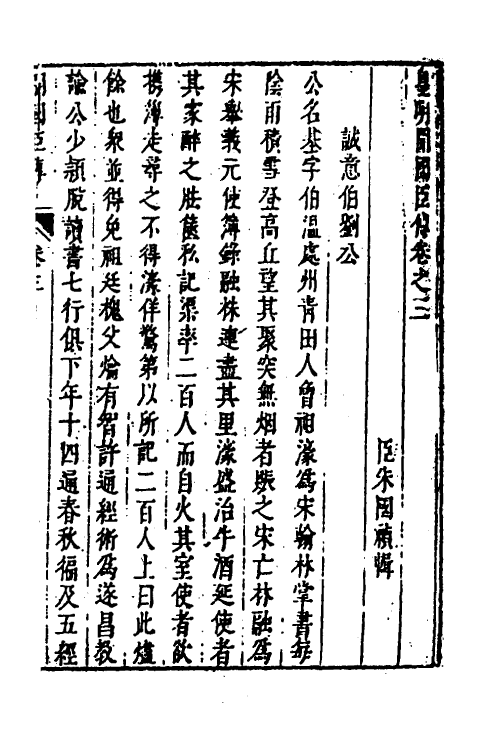 皇明開國臣傳卷之三
臣朱國禎輯
誠意伯劉公
公名基字伯溫處州青田人曾祖濠為宋翰林掌書每
陰雨積雪登高丘望其聚突無烟者賑之宋亡林融為
宋舉義元使簿錄融株連盡其里濠盛治牛酒延使者
其家醉之胠篋私記渠率二百人而自火其室使者欲
機薄走尋之不得濠佯驚第以所記二百人上曰此爐
餘也衆並得免祖廷槐父爚有智許通經術為遂昌教
諭公少穎脫讀書七行俱下年十四通春秋徧及五經
開國臣傳 卷三